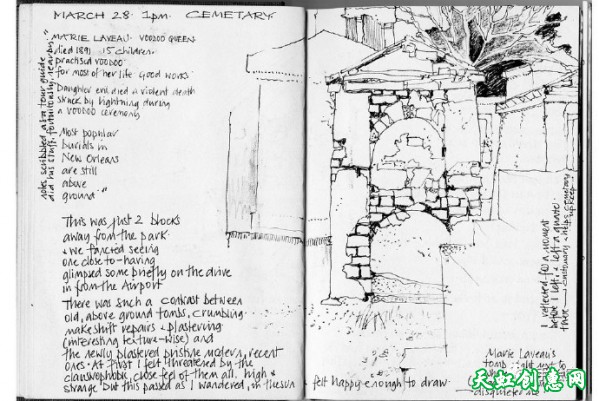 MARCH 28. 1pm. CEMETARY.
"MARIE LAVEAU. VOODOO QUEEN
died 1891. 15 children.
practised VOODOO
for most of her life. Good works.
Daughter evil died a violent death
struck by lightning during
a VOODOO ceremony.
Most popular
burials in
New Orleans
are still
above
ground."
notes scribbled as a tour guide
did his stuff, fortuitously nearby
This was just 2 blocks
away from the park.
& we fancied seeing
one close to - having
glimpsed some briefly on the drive
in from the Airport
There was such a contrast between
old, above ground tombs, crumbling
makeshift repairs & plastering
(interesting texture-wise) and
the newly plastered pristine modern, recent
ones. At first I felt threatened by the
claustrophobic, close feel of them all. high &
strange. but this passed as I wandered, in the sun
felt happy enough to draw.
I reflected for a moment
before I left, & left a quarter
there → customary & helps cemetary
upkeep
Marie Laveau's
tomb. right next to
disquieted me
天虹创意网